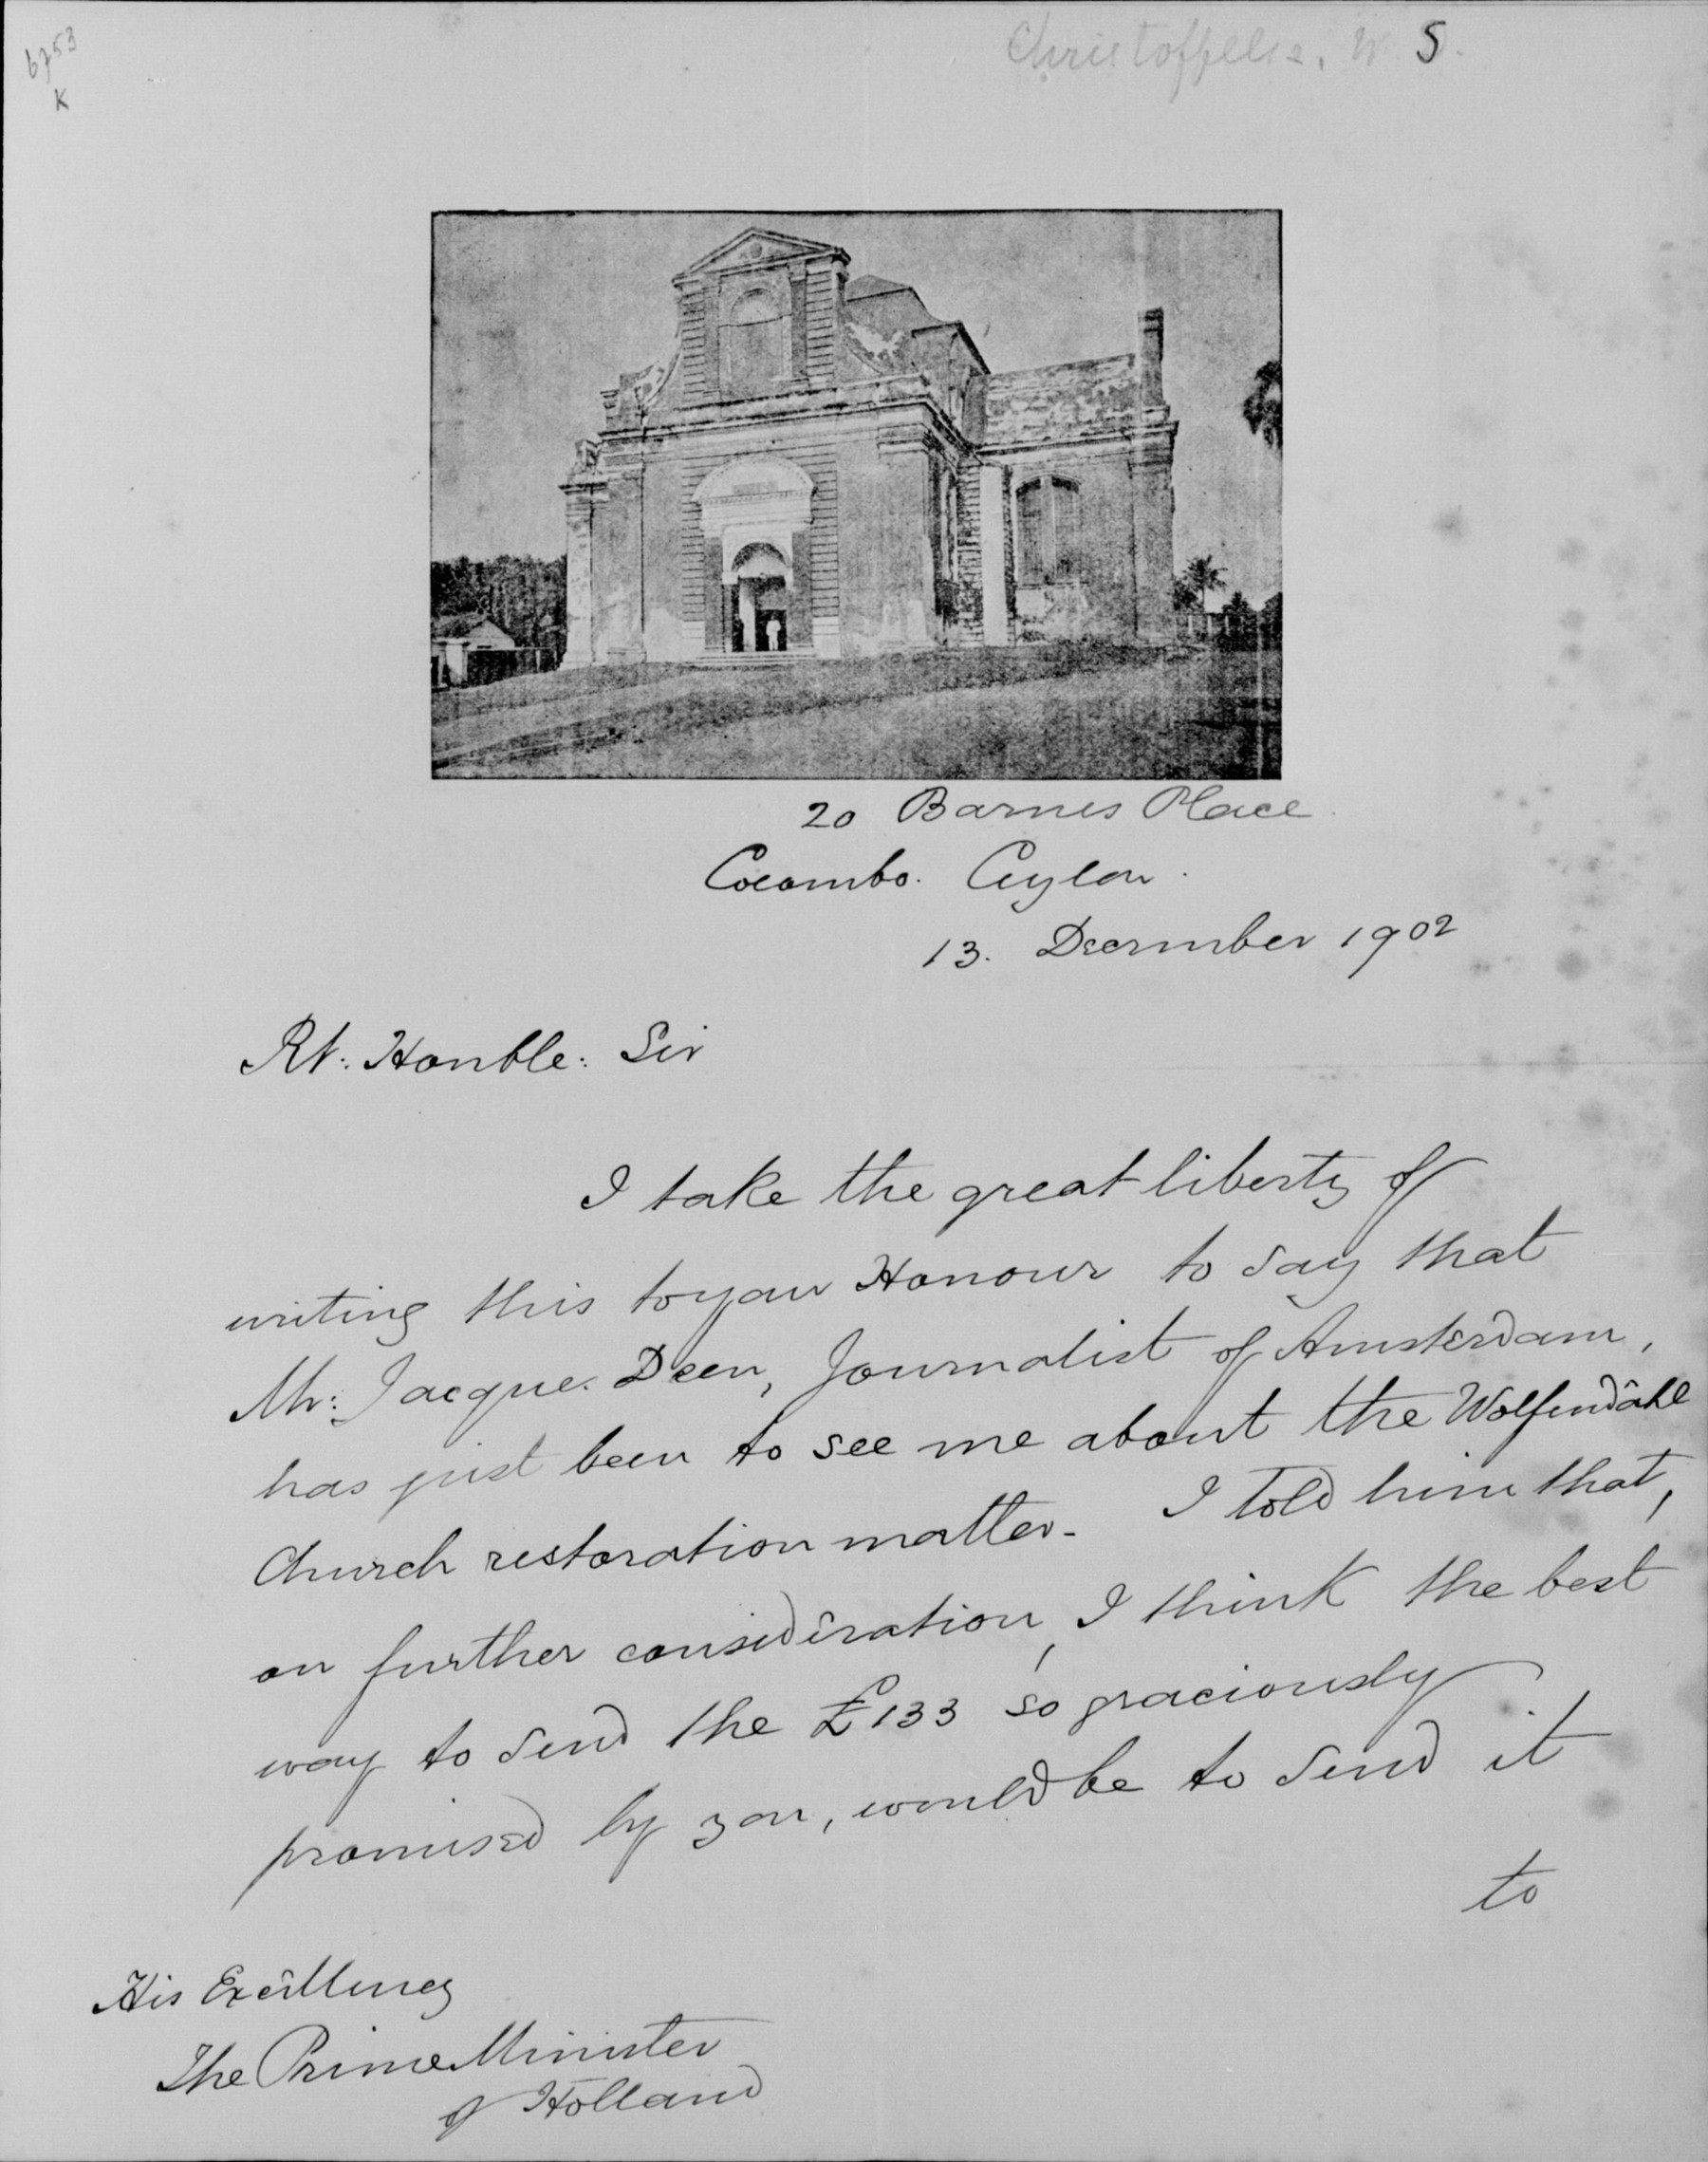 6753
K
Christoffelsz, W. S.
20 Barnes Place
Colombo. Ceylon.
13. December 1902
Rt: Honble: Sir
I take the great liberty of
writing this to your Honour to say that
Mr: Jacque. Deen, Journalist of Amsterdam,
has just been to see me about the Wolfendahl
Church restoration matter. I told him that,
on further consideration, I think the best
way to send the £133 so graciously
promised by you, would be to send it
to
His Excellency
The Prime Minister
of Holland